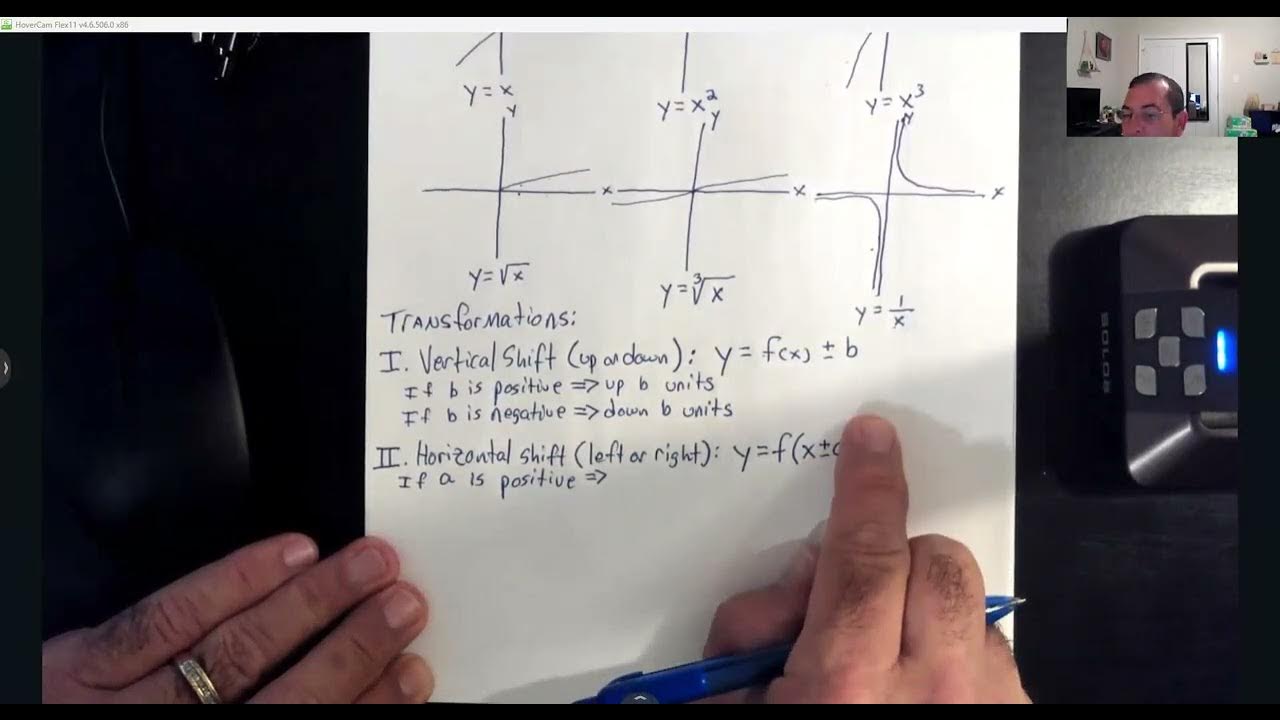 HoverCam Flex11 v4.6.506.0 x86
y = x
y = x²
y = x³
y
y
y
x
x
x
y = √x
y = ∛x
y = 1/x
Transformations:
I. Vertical Shift (up or down): y = f(x) ± b
If b is positive => up b units
If b is negative => down b units
II. Horizontal Shift (left or right): y = f(x ±
If a is positive =>
SOLOS